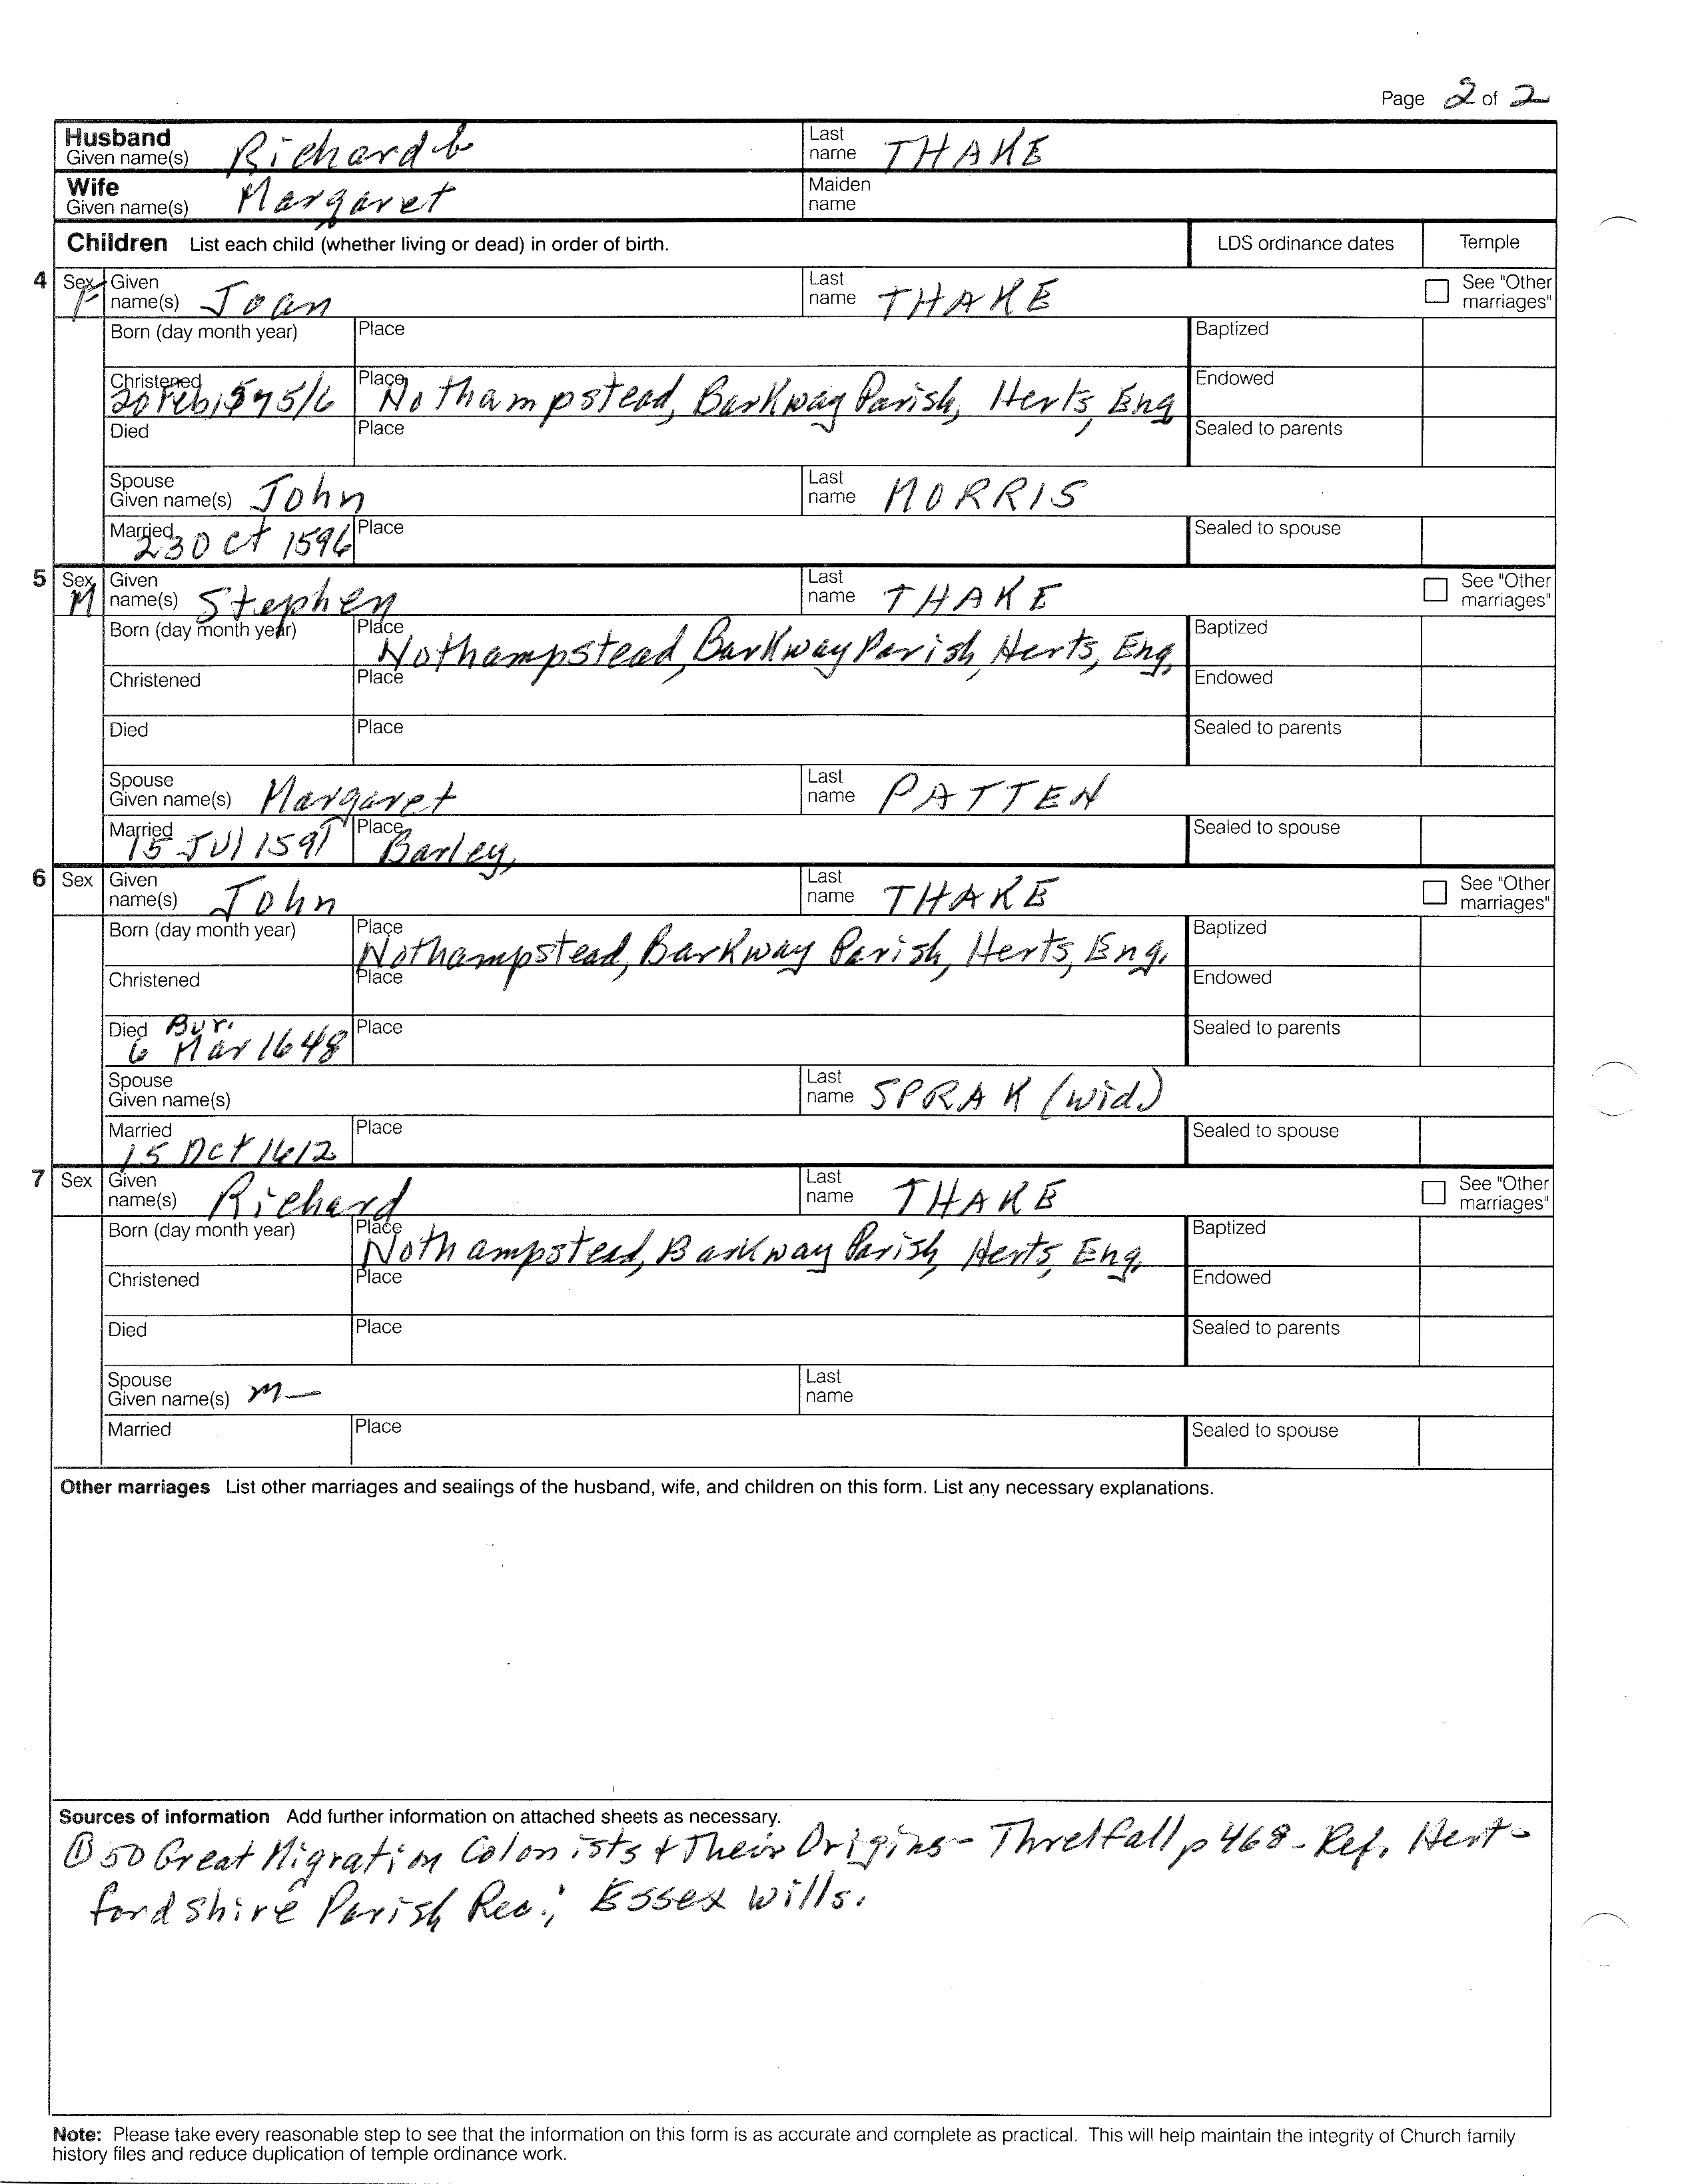 Page 2 of 2
Husband Given name(s) Richard Last name THAKE
Wife Given name(s) Margaret Maiden name
Children List each child (whether living or dead) in order of birth. LDS ordinance dates Temple
4 Sex F Given name(s) Joan Last name THAKE See "Other marriages"
Born (day month year) Place Baptized
Christened 20 Feb 1575/6 Place Nothampstead, Barkway Parish, Herts, Eng Endowed
Died Place Sealed to parents
Spouse Given name(s) John Last name MORRIS
Married 23 Oct 1596 Place Sealed to spouse
5 Sex M Given name(s) Stephen Last name THAKE See "Other marriages"
Born (day month year) Place Nothampstead, Barkway Parish, Herts, Eng.
Baptized
Christened Place Endowed
Died Place Sealed to parents
Spouse Given name(s) Margaret Last name PATTEN
Married 15 Jul Place Barley, Sealed to spouse
6 Sex Given name(s) John Last name THAKE See "Other marriages"
Born (day month year) Place Nothampstead, Barkway Parish, Herts, Eng. Baptized
Christened Place Endowed
Died Bur. 6 Mar 1648 Place Sealed to parents
Spouse Given name(s) Last name SPRAK (wid.)
Married 15 Oct 1612 Place Sealed to spouse
7 Sex Given name(s) Richard Last name THAKE See "Other marriages"
Born (day month year) Place Nothampstead, Barkway Parish, Herts, Eng. Baptized
Christened Place Endowed
Died Place Sealed to parents
Spouse Given name(s) m— Last name
Married Place Sealed to spouse
Other marriages List other marriages and sealings of the husband, wife, and children on this form. List any necessary explanations.
Sources of information Add further information on attached sheets as necessary.
① 50 Great Migration Colonists & Their Origins - Threlfall p 468 - Ref. Hert-
fordshire Parish Rec.; Essex Wills.
Note: Please take every reasonable step to see that the information on this form is as accurate and complete as practical. This will help maintain the integrity of Church family
history files and reduce duplication of temple ordinance work.